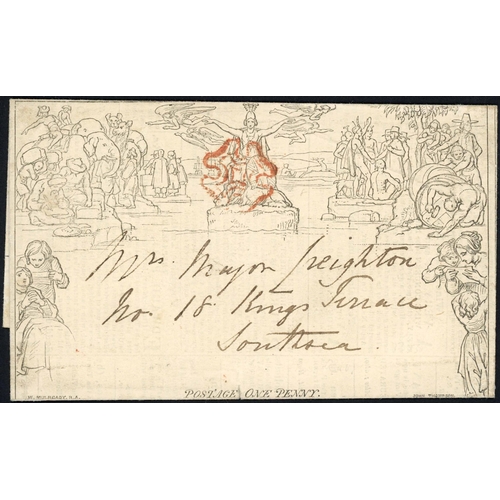 Mrs. Major Creighton
No. 18 Kings Terrace
Southsea.
POSTAGE ONE PENNY.
W. MULREADY, R.A.
JOHN THOMPSON